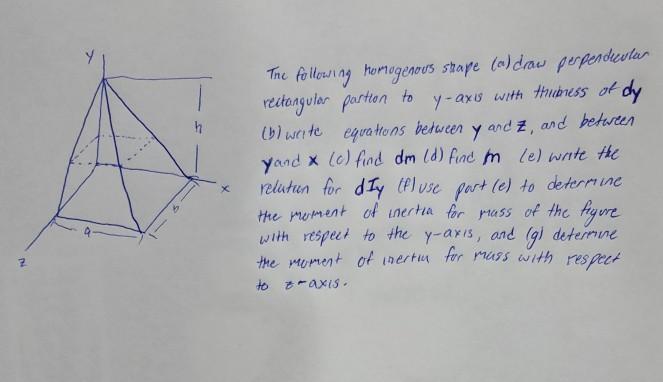 y
h
x
b
a
z
The following homogenous shape (a) draw perpendicular
rectangular portion to y-axis with thickness of dy
(b) write equations between y and z, and between
y and x (c) find dm (d) find m (e) write the
relation for dIy (f) use part (e) to determine
the moment of inertia for mass of the figure
with respect to the y-axis, and (g) determine
the moment of inertia for mass with respect
to z-axis.